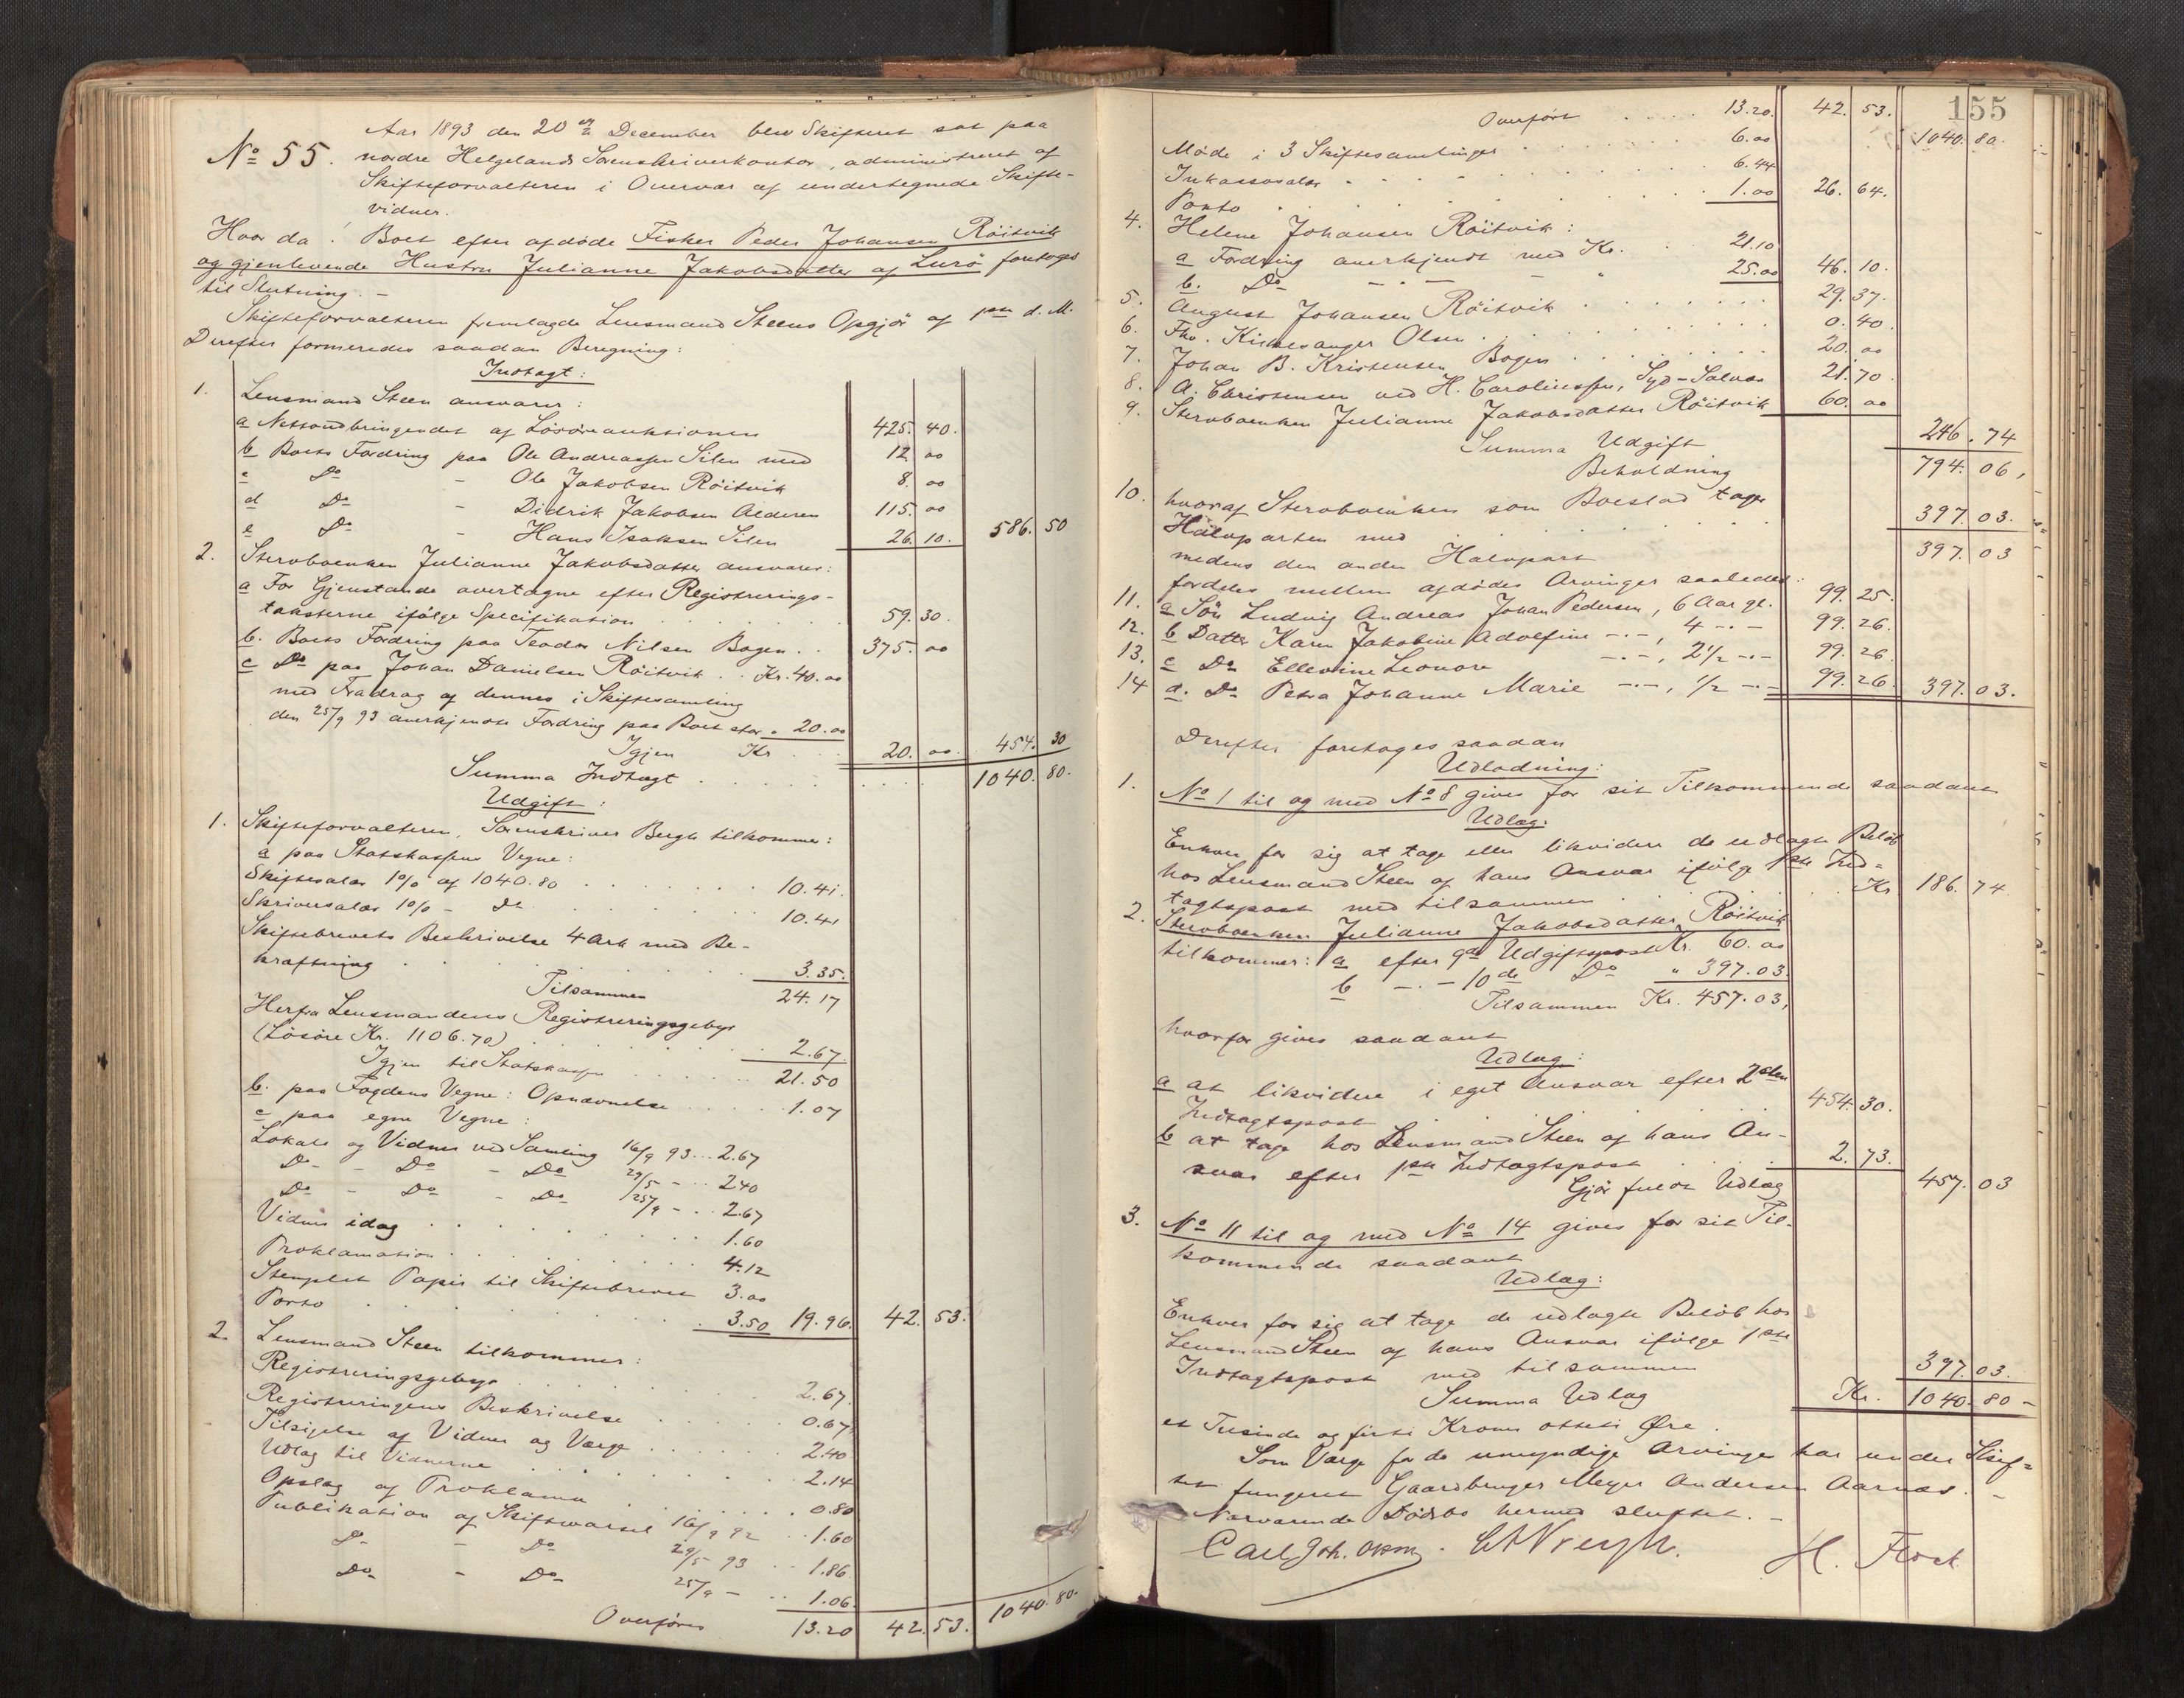 Aar 1893 den 20de December blev Skifteret sat paa
No 55. nordre Helgelands Sorenskriverkontor, administreret af
Skifteforvalteren i Overvær af undertegnede Skifte-
vidner.
Hvor da: Boet efter afdøde Fisker Peder Johansen Röitvik
og gjenlevende Hustru Julianne Jakobsdatter af Lurö foretoges
til Slutning. -
Skifteforvalteren fremlagde Lensmand Steens Opgjör af 1ste d. M.
Derefter formeredes saadan Beregning:
Indtægt:
1. Lensmand Steen ansvarer:
a Nettoudbringendet af Lösöreauktionen 425. 40.
b Boets Fordring paa Ole Andreassen Silen med 12 00
c Do - Ole Jakobsen Röitvik 8. 00
d Do - Didrik Jakobsen Alderen 115. 00
e Do - Hans Isaksen Silen 26. 10. 586. 50
2. Stervboenken Julianne Jakobsdatter ansvarer:
a For Gjenstande overtagne efter Registrerings-
taksterne ifölge Specifikation 59. 30.
b. Boets Fordring paa Teodor Nilsen Bogen . . 375. 00
c Do paa Johan Danielsen Röitvik . . Kr. 40. 00
med Fradrag af dennes i Skiftesamling
den 25/9 93 anerkjendte Fordring paa Boet stor " 20. 00
Igjen Kr 20. 00. 454. 30
Summa Indtægt . . . . 1040. 80.
Udgift:
1. Skifteforvalteren, Sorenskriver Bergh tilkommer:
a paa Statskassens Vegne:
Skiftesalær 1% af 1040.80 . . . 10.41.
Skriversalær 1% - Do . . . 10.41
Skiftebrevets Beskrivelse 4 Ark med Be-
kræftning . . . 3.35.
Tilsammen 24.17
Herfra Lensmandens Registreringsgebyr
(Lösöre Kr. 1106.70) . . . 2.67.
Igjen til Statskassen . . . 21.50
b. paa Fogdens Vegne: Opnævnelse . . . 1.07
c paa egne Vegne:
Lokale og Vidner ved Samling 16/9 93 .. 2.67
Do - Do - Do 29/5 - .. 2.40
Do - Do - Do 25/9 - .. 2.67
Vidner idag . . . 1.60
Proklamation . . . 4.12
Stemplet Papir til Skiftebrevet 3.00
Porto . . . 3.50 19.96. 42. 53.
2. Lensmand Steen tilkommer:
Registreringsgebyr . . . 2.67.
Registreringens Beskrivelse . . . 0.67.
Tilsigelse af Vidner og Værge . . . 2.40
Udlæg til Vidnerne . . . 2.14
Opslag af Proklama . . . 0.80
Publikation af Skiftevarsel 16/9 92 .. 1.60
Do - Do 29/5 93 .. 1.86
Do - Do 25/9 - .. 1.06.
Overføres 13.20 42. 53. 1040. 80.
155
Overført . . . 13.20. 42. 53. 1040. 80.
Möde i 3 Skiftesamlinger . . . 6.00
Inkassosalær . . . 6.44
Porto . . . 1.00 26. 64.
4. Helene Johansen Röitvik:
a Fordring anerkjendt med Kr. 21.10
b. Do - . - " 25.00 46. 10.
5. August Johansen Röitvik . . . 29. 37.
6. Fhv. Kirkesanger Olsen . . . 0. 40.
7. Johan B. Kristensen Bogen . . . 20. 00
8. A. Christensen ved H. Carolinessen, Syd-Solvær 21. 70.
9. Stervboenken Julianne Jakobsdatter Röitvik 60. 00
Summa Udgift 246. 74
Beholdning 794. 06,
10. hvoraf Stervboenken som Boeslod tager
Halvparten med . . . 397. 03.
medens den anden Halvpart 397. 03
fordeles mellem afdödes Arvinger saaledes:
11. a Sön Ludvig Andreas Johan Pedersen, 6 Aar gl. 99. 25.
12. b Datter Karen Jakobine Adolfine -.-, 4 -.- 99. 26.
13. c Do Ellevine Leonore -.-, 2½ -.- 99. 26
14 d. Do Petra Johanne Marie -.-, ½ -.- 99. 26. 397. 03.
Derefter foretoges saadan
Udlodning:
1. No 1 til og med No 8 gives for sit Tilkommende saadant
Udlæg:
Enhver for sig at tage eller likvidere de udlagte Beløb
hos Lensmand Steen af hans Ansvar ifölge 1ste Ind-
tægtspost med tilsammen . . . Kr 186. 74
2. Stervboenken Julianne Jakobsdatter Röitvik
tilkommer: a efter 9de Udgiftspost Kr. 60. 00
b -.- 10de Do " 397.03.
Tilsammen Kr. 457.03,
hvorfor gives saadant
Udlæg:
a at likvidere i eget Ansvar efter 2den
Indtægtspost . . . 454. 30.
b at tage hos Lensmand Steen af hans An-
svar efter 1ste Indtægtspost . . . 2. 73.
Gjör fuldt Udlæg 457. 03
3. No 11 til og med No 14 gives for sit Til-
kommende saadant
Udlæg:
Enhver for sig at tage de udlagte Beløb hos
Lensmand Steen af hans Ansvar ifölge 1ste
Indtægtspost med tilsammen 397. 03.
Summa Udlæg Kr. 1040. 80 -
et Tusinde og firti Kroner otteti Øre.
Som Værge for de umyndige Arvinger har under Skif-
tet fungeret Gaardbruger Meyer Andersen Aarnæs. -
Nærværende Dödsbo hermed sluttet. -
Carl Joh. Olsen. H. Flock